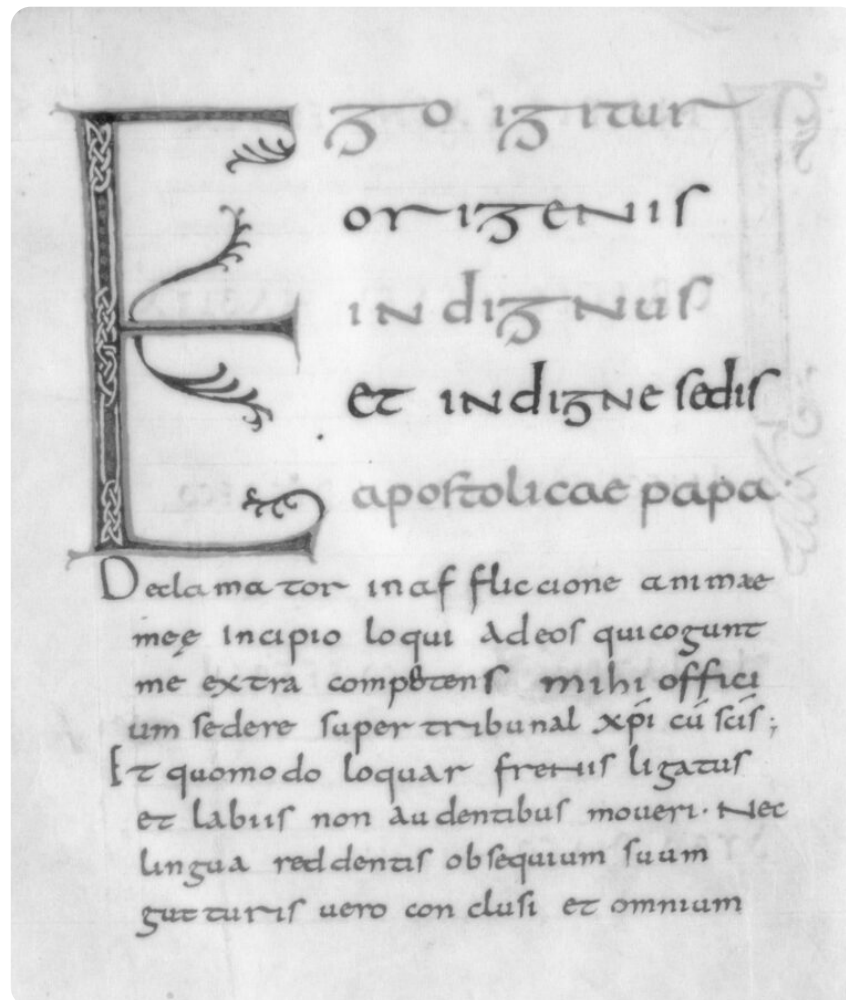 Ego igitur
origenis
indignus
et indigne sedis
apostolicae papa·
Declamator inaf fliccione animae
meę Incipio loqui Adeos quicogunt
me extra compotens mihi offici
um sedere super tribunal xp̄i cū scīs;
Et quomodo loquar frenis ligatus
et labiis non audentibus moueri· Nec
lingua reddentis obsequium suum
gutturis uero conclusi et omnium